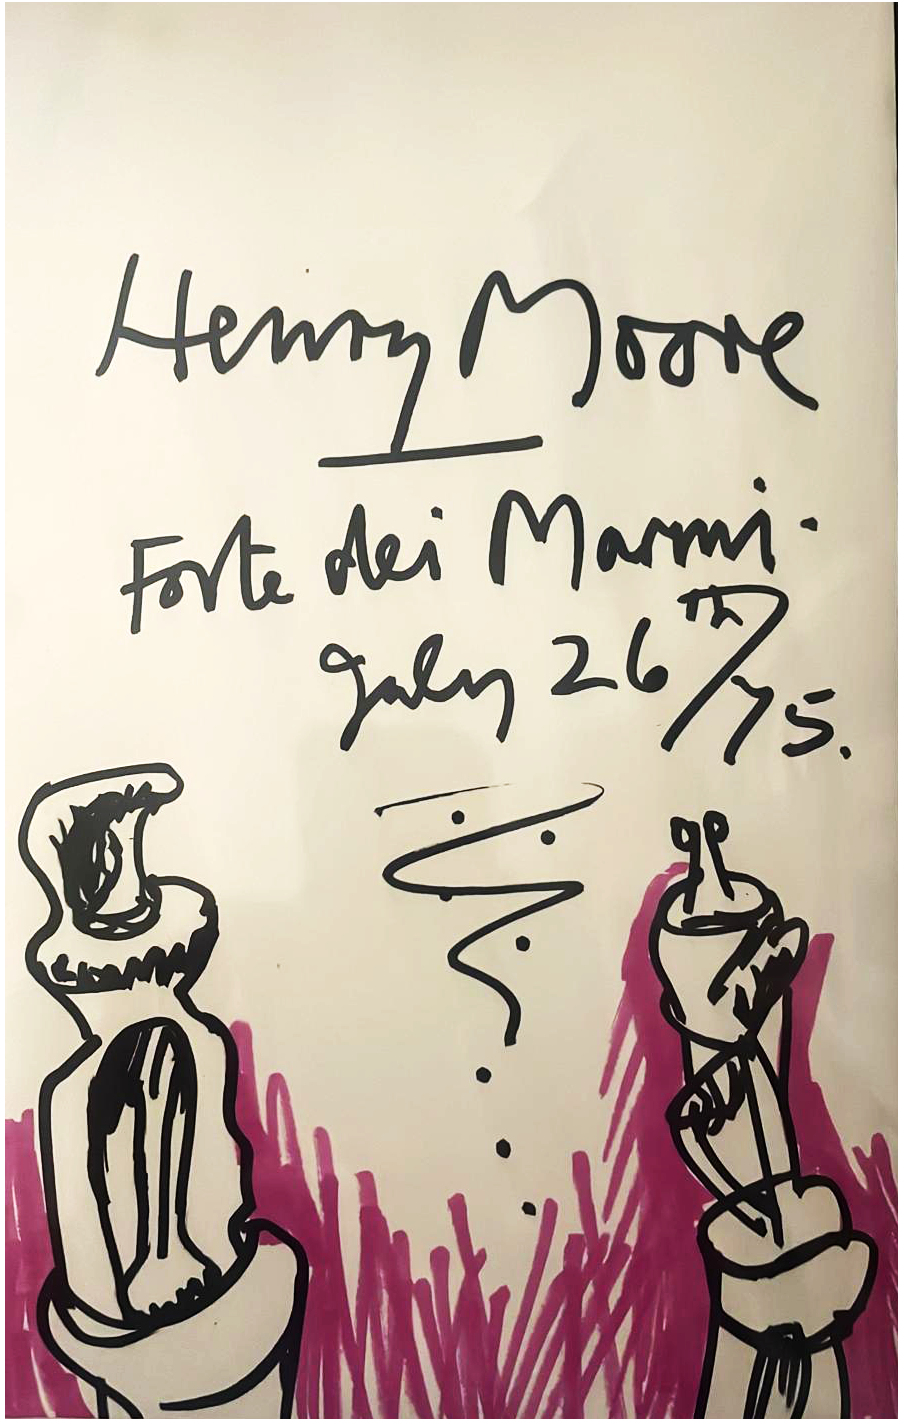 Henry Moore
Forte dei Marmi.
July 26th/75.